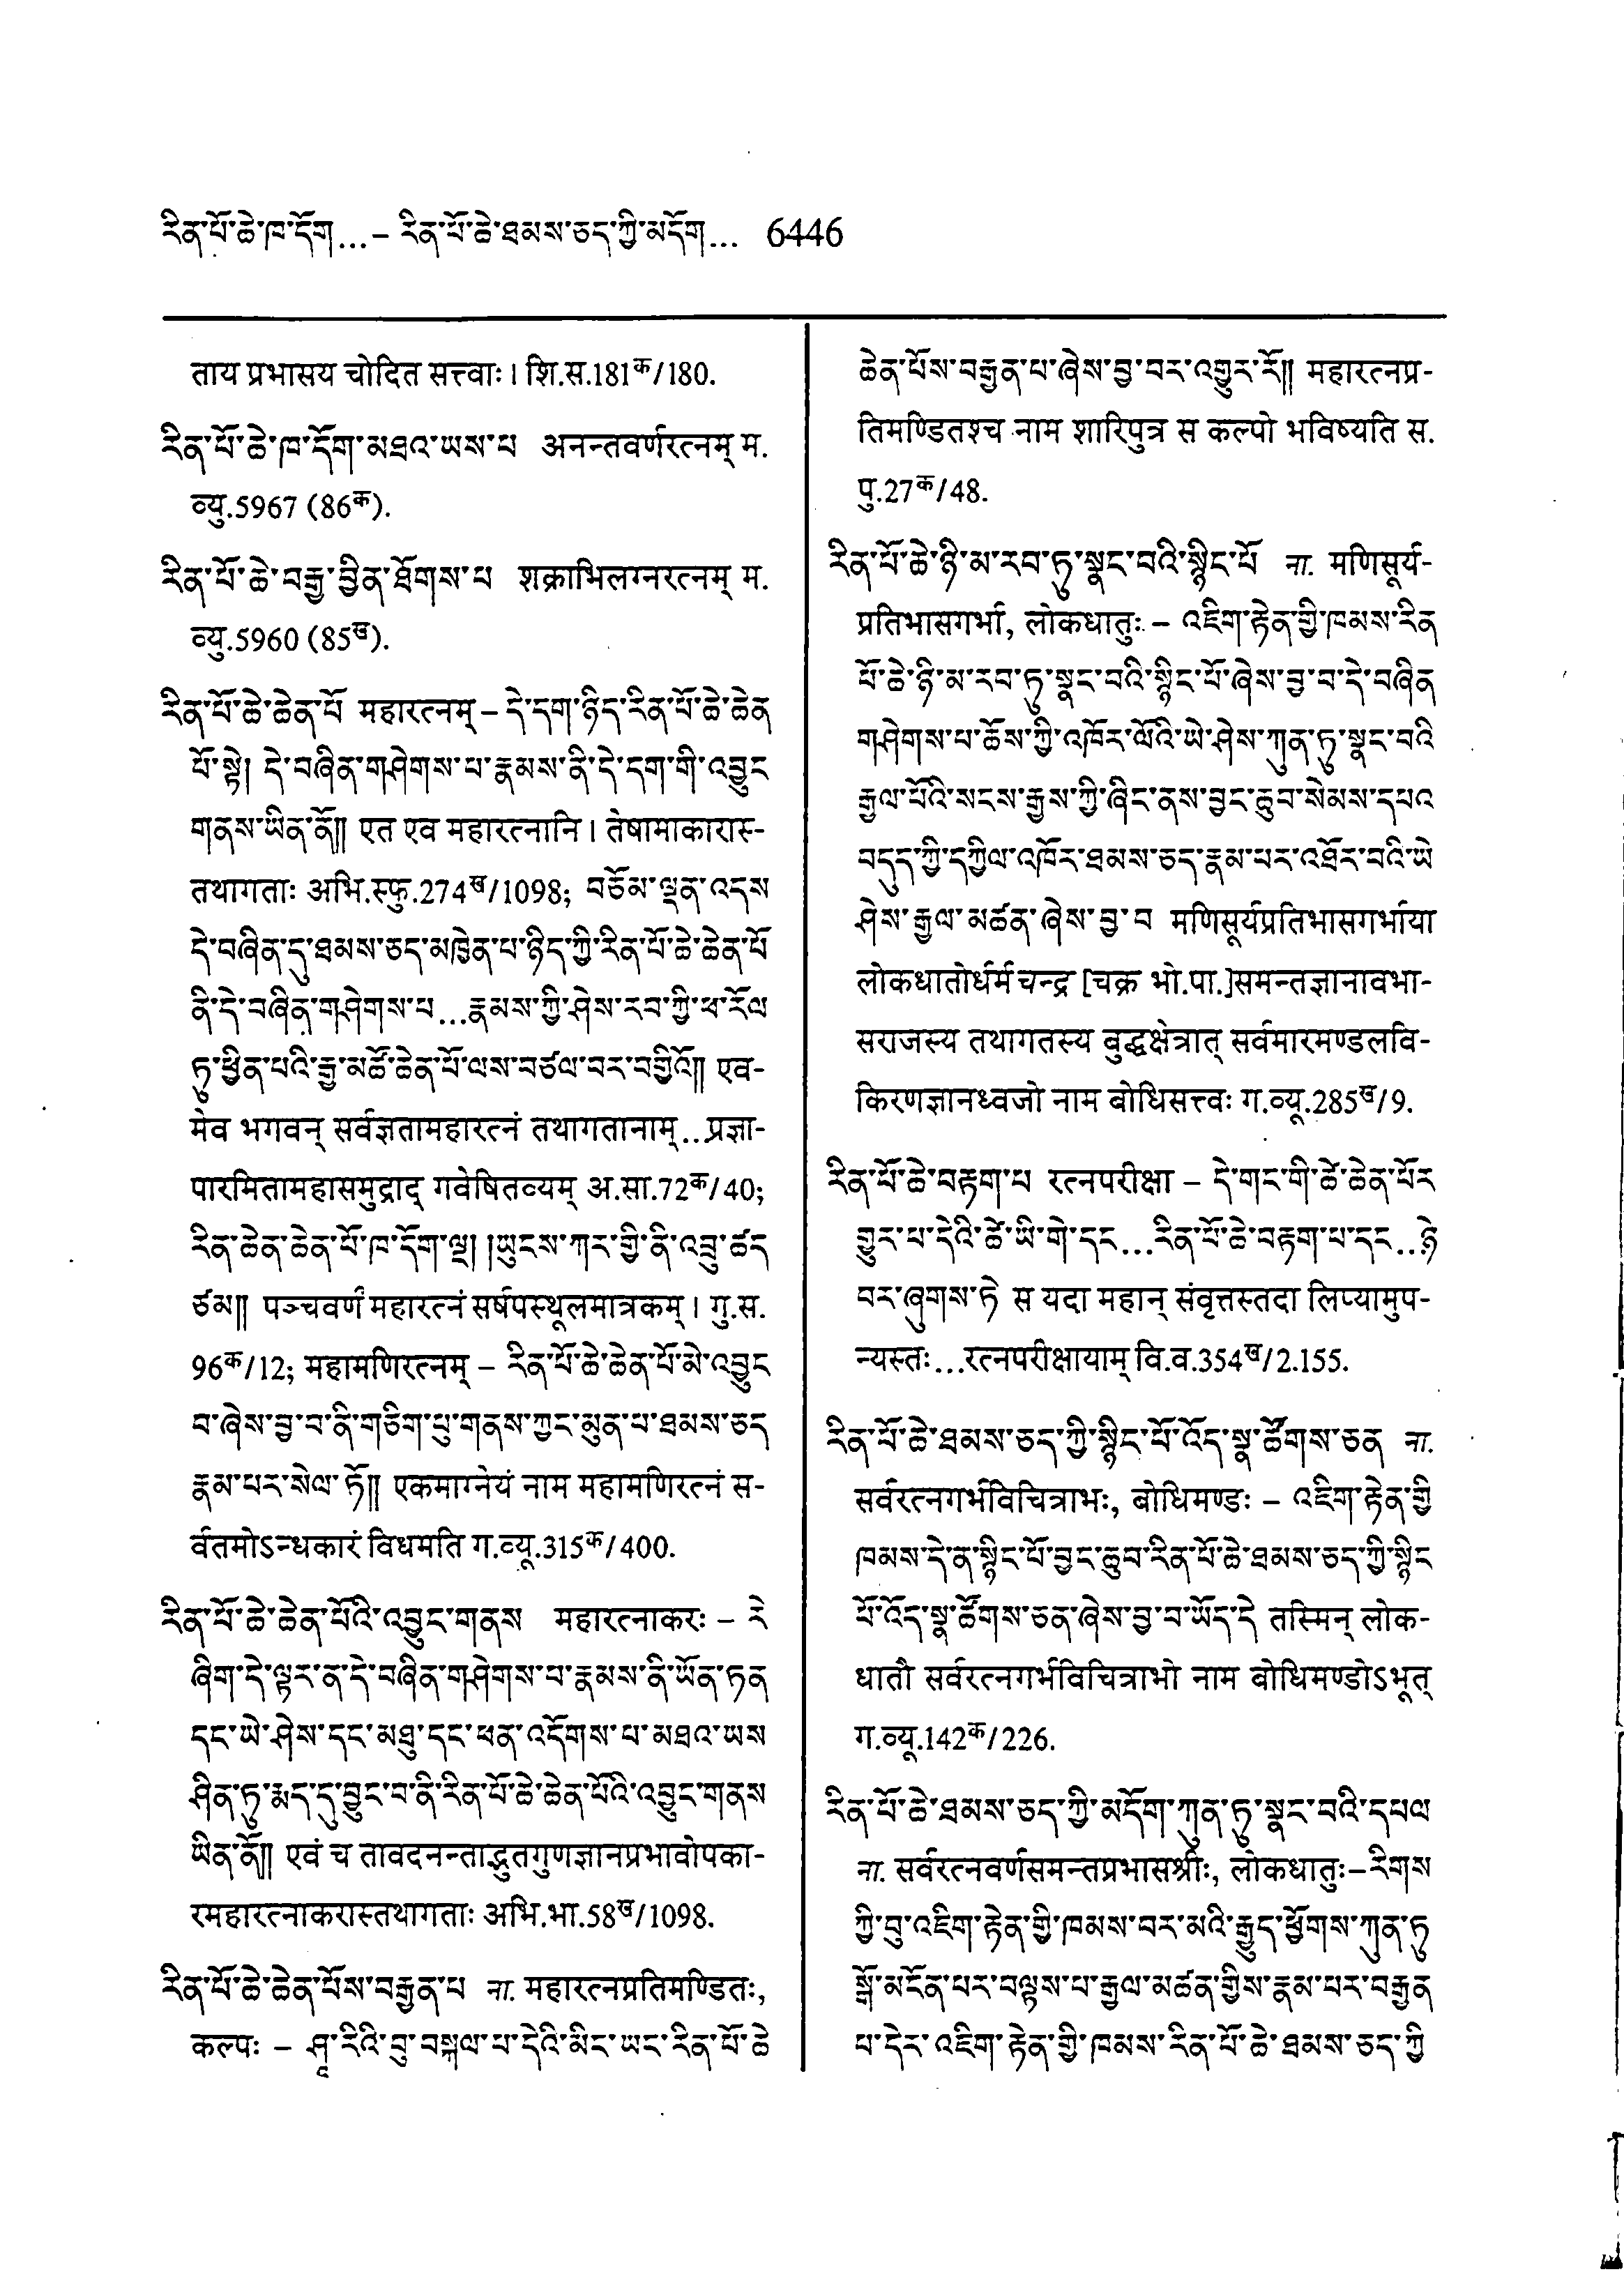 རིན་པོ་ཆེ་ཁ་དོག...– རིན་པོ་ཆེ་ཐམས་ཅད་ཀྱི་མདོག... 6446
ताय प्रभासय चोदित सत्त्वाः । शि.स.181क/180.
རིན་པོ་ཆེ་ཁ་དོག་མཐའ་ཡས་པ अनन्तवर्णरत्नम् म.
व्यु.5967 (86क).
རིན་པོ་ཆེ་བརྒྱ་བྱིན་ཐོགས་པ शक्राभिलग्नरत्नम् म.
व्यु.5960 (85ख).
རིན་པོ་ཆེ་ཆེན་པོ महारत्नम् – དེ་དག་ཉིད་རིན་པོ་ཆེ་ཆེན
པོ་སྟེ། དེ་བཞིན་གཤེགས་པ་རྣམས་ནི་དེ་དག་གི་འབྱུང
གནས་ཡིན་ནོ།། एत एव महारत्नानि । तेषामाकारास्-
तथागताः अभि.स्फु.274ख/1098; བཅོམ་ལྡན་འདས
དེ་བཞིན་དུ་ཐམས་ཅད་མཁྱེན་པ་ཉིད་ཀྱི་རིན་པོ་ཆེ་ཆེན་པོ
ནི་དེ་བཞིན་གཤེགས་པ...རྣམས་ཀྱི་ཤེས་རབ་ཀྱི་ཕ་རོལ
ཏུ་ཕྱིན་པའི་རྒྱ་མཚོ་ཆེན་པོ་ལས་བཙལ་བར་བགྱིའོ།། एव-
मेव भगवन् सर्वज्ञतामहारत्नं तथागतानाम्...प्रज्ञा-
पारमितामहासमुद्राद् गवेषितव्यम् अ.सा.72क/40;
རིན་ཆེན་ཆེན་པོ་ཁ་དོག་ལྔ། །ཡུངས་ཀར་གྱི་ནི་འབྲུ་ཚད
ཙམ།། पञ्चवर्णं महारत्नं सर्षपस्थूलमात्रकम् । गु.स.
96क/12; महामणिरत्नम् – རིན་པོ་ཆེ་ཆེན་པོ་མེ་འབྱུང
བ་ཞེས་བྱ་བ་ནི་གཅིག་པུ་གནས་ཀྱང་མུན་པ་ཐམས་ཅད
རྣམ་པར་སེལ་ཏོ།། एकमाग्नेयं नाम महामणिरत्नं स-
र्वतमोऽन्धकारं विधमति ग.व्यू.315क/400.
རིན་པོ་ཆེ་ཆེན་པོའི་འབྱུང་གནས महारत्नाकरः – རེ
ཞིག་དེ་ལྟར་ན་དེ་བཞིན་གཤེགས་པ་རྣམས་ནི་ཡོན་ཏན
དང་ཡེ་ཤེས་དང་མཐུ་དང་ཕན་འདོགས་པ་མཐའ་ཡས
ཤིན་ཏུ་རྨད་དུ་བྱུང་བ་ནི་རིན་པོ་ཆེ་ཆེན་པོའི་འབྱུང་གནས
ཡིན་ནོ།། एवं च तावदनन्ताद्भुतगुणज्ञानप्रभावोपका-
रमहारत्नाकरास्तथागताः अभि.भा.58ख/1098.
རིན་པོ་ཆེ་ཆེན་པོས་བརྒྱན་པ ना. महारत्नप्रतिमण्डितः,
कल्पः – ཤཱ་རིའི་བུ་བསྐལ་པ་དེའི་མིང་ཡང་རིན་པོ་ཆེ
ཆེན་པོས་བརྒྱན་པ་ཞེས་བྱ་བར་འགྱུར་རོ།། महारत्नप्र-
तिमण्डितश्च नाम शारिपुत्र स कल्पो भविष्यति स.
पु.27क/48.
རིན་པོ་ཆེ་ཉི་མ་རབ་ཏུ་སྣང་བའི་སྙིང་པོ ना. मणिसूर्य-
प्रतिभासगर्भा, लोकधातुः – འཇིག་རྟེན་གྱི་ཁམས་རིན
པོ་ཆེ་ཉི་མ་རབ་ཏུ་སྣང་བའི་སྙིང་པོ་ཞེས་བྱ་བ་དེ་བཞིན
གཤེགས་པ་ཆོས་ཀྱི་འཁོར་ལོའི་ཡེ་ཤེས་ཀུན་ཏུ་སྣང་བའི
རྒྱལ་པོའི་སངས་རྒྱས་ཀྱི་ཞིང་ནས་བྱང་ཆུབ་སེམས་དཔའ
བདུད་ཀྱི་དཀྱིལ་འཁོར་ཐམས་ཅད་རྣམ་པར་འཐོར་བའི་ཡེ
ཤེས་རྒྱལ་མཚན་ཞེས་བྱ་བ मणिसूर्यप्रतिभासगर्भाया
लोकधातोर्धर्मचन्द्र [चक्र भो.पा.]समन्तज्ञानावभा-
सराजस्य तथागतस्य बुद्धक्षेत्रात् सर्वमारमण्डलवि-
किरणज्ञानध्वजो नाम बोधिसत्त्वः ग.व्यू.285ख/9.
རིན་པོ་ཆེ་བརྟག་པ रत्नपरीक्षा – དེ་གང་གི་ཚེ་ཆེན་པོར
གྱུར་པ་དེའི་ཚེ་ཡི་གེ་དང...རིན་པོ་ཆེ་བརྟག་པ་དང...ཉེ
བར་ཞུགས་ཏེ स यदा महान् संवृत्तस्तदा लिप्यामुप-
न्यस्तः...रत्नपरीक्षायाम् वि.व.354ख/2.155.
རིན་པོ་ཆེ་ཐམས་ཅད་ཀྱི་སྙིང་པོ་འོད་སྣ་ཚོགས་ཅན ना.
सर्वरत्नगर्भविचित्राभः, बोधिमण्डः – འཇིག་རྟེན་གྱི
ཁམས་དེ་ན་སྙིང་པོ་བྱང་ཆུབ་རིན་པོ་ཆེ་ཐམས་ཅད་ཀྱི་སྙིང
པོ་འོད་སྣ་ཚོགས་ཅན་ཞེས་བྱ་བ་ཡོད་དེ तस्मिन् लोक-
धातौ सर्वरत्नगर्भविचित्राभो नाम बोधिमण्डोऽभूत्
ग.व्यू.142क/226.
རིན་པོ་ཆེ་ཐམས་ཅད་ཀྱི་མདོག་ཀུན་ཏུ་སྣང་བའི་དཔལ
ना. सर्वरत्नवर्णसमन्तप्रभासश्रीः, लोकधातुः – རིགས
ཀྱི་བུ་འཇིག་རྟེན་གྱི་ཁམས་བར་མའི་རྒྱུད་ཕྱོགས་ཀུན་ཏུ
སྒོ་མངོན་པར་བལྟས་པ་རྒྱལ་མཚན་གྱིས་རྣམ་པར་བརྒྱན
པ་དེར་འཇིག་རྟེན་གྱི་ཁམས་རིན་པོ་ཆེ་ཐམས་ཅད་ཀྱི